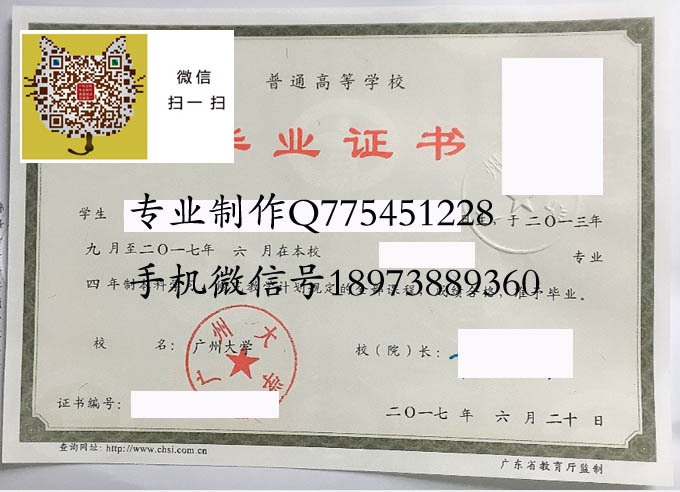 微信
扫一扫
普通高等学校
毕业证书
学生
专业制作Q775451228
于二〇一三年
九月至二〇一七年 六 月在本校
专业
四年制本科
手机微信号18973889360
计划规定的全部课程，成绩合格，准予毕业。
校 名：广州大学
校（院）长：
广州大学
证书编号：
二〇一七年 六 月 二十 日
查询网址：http://www.chsi.com.cn
广东省教育厅监制